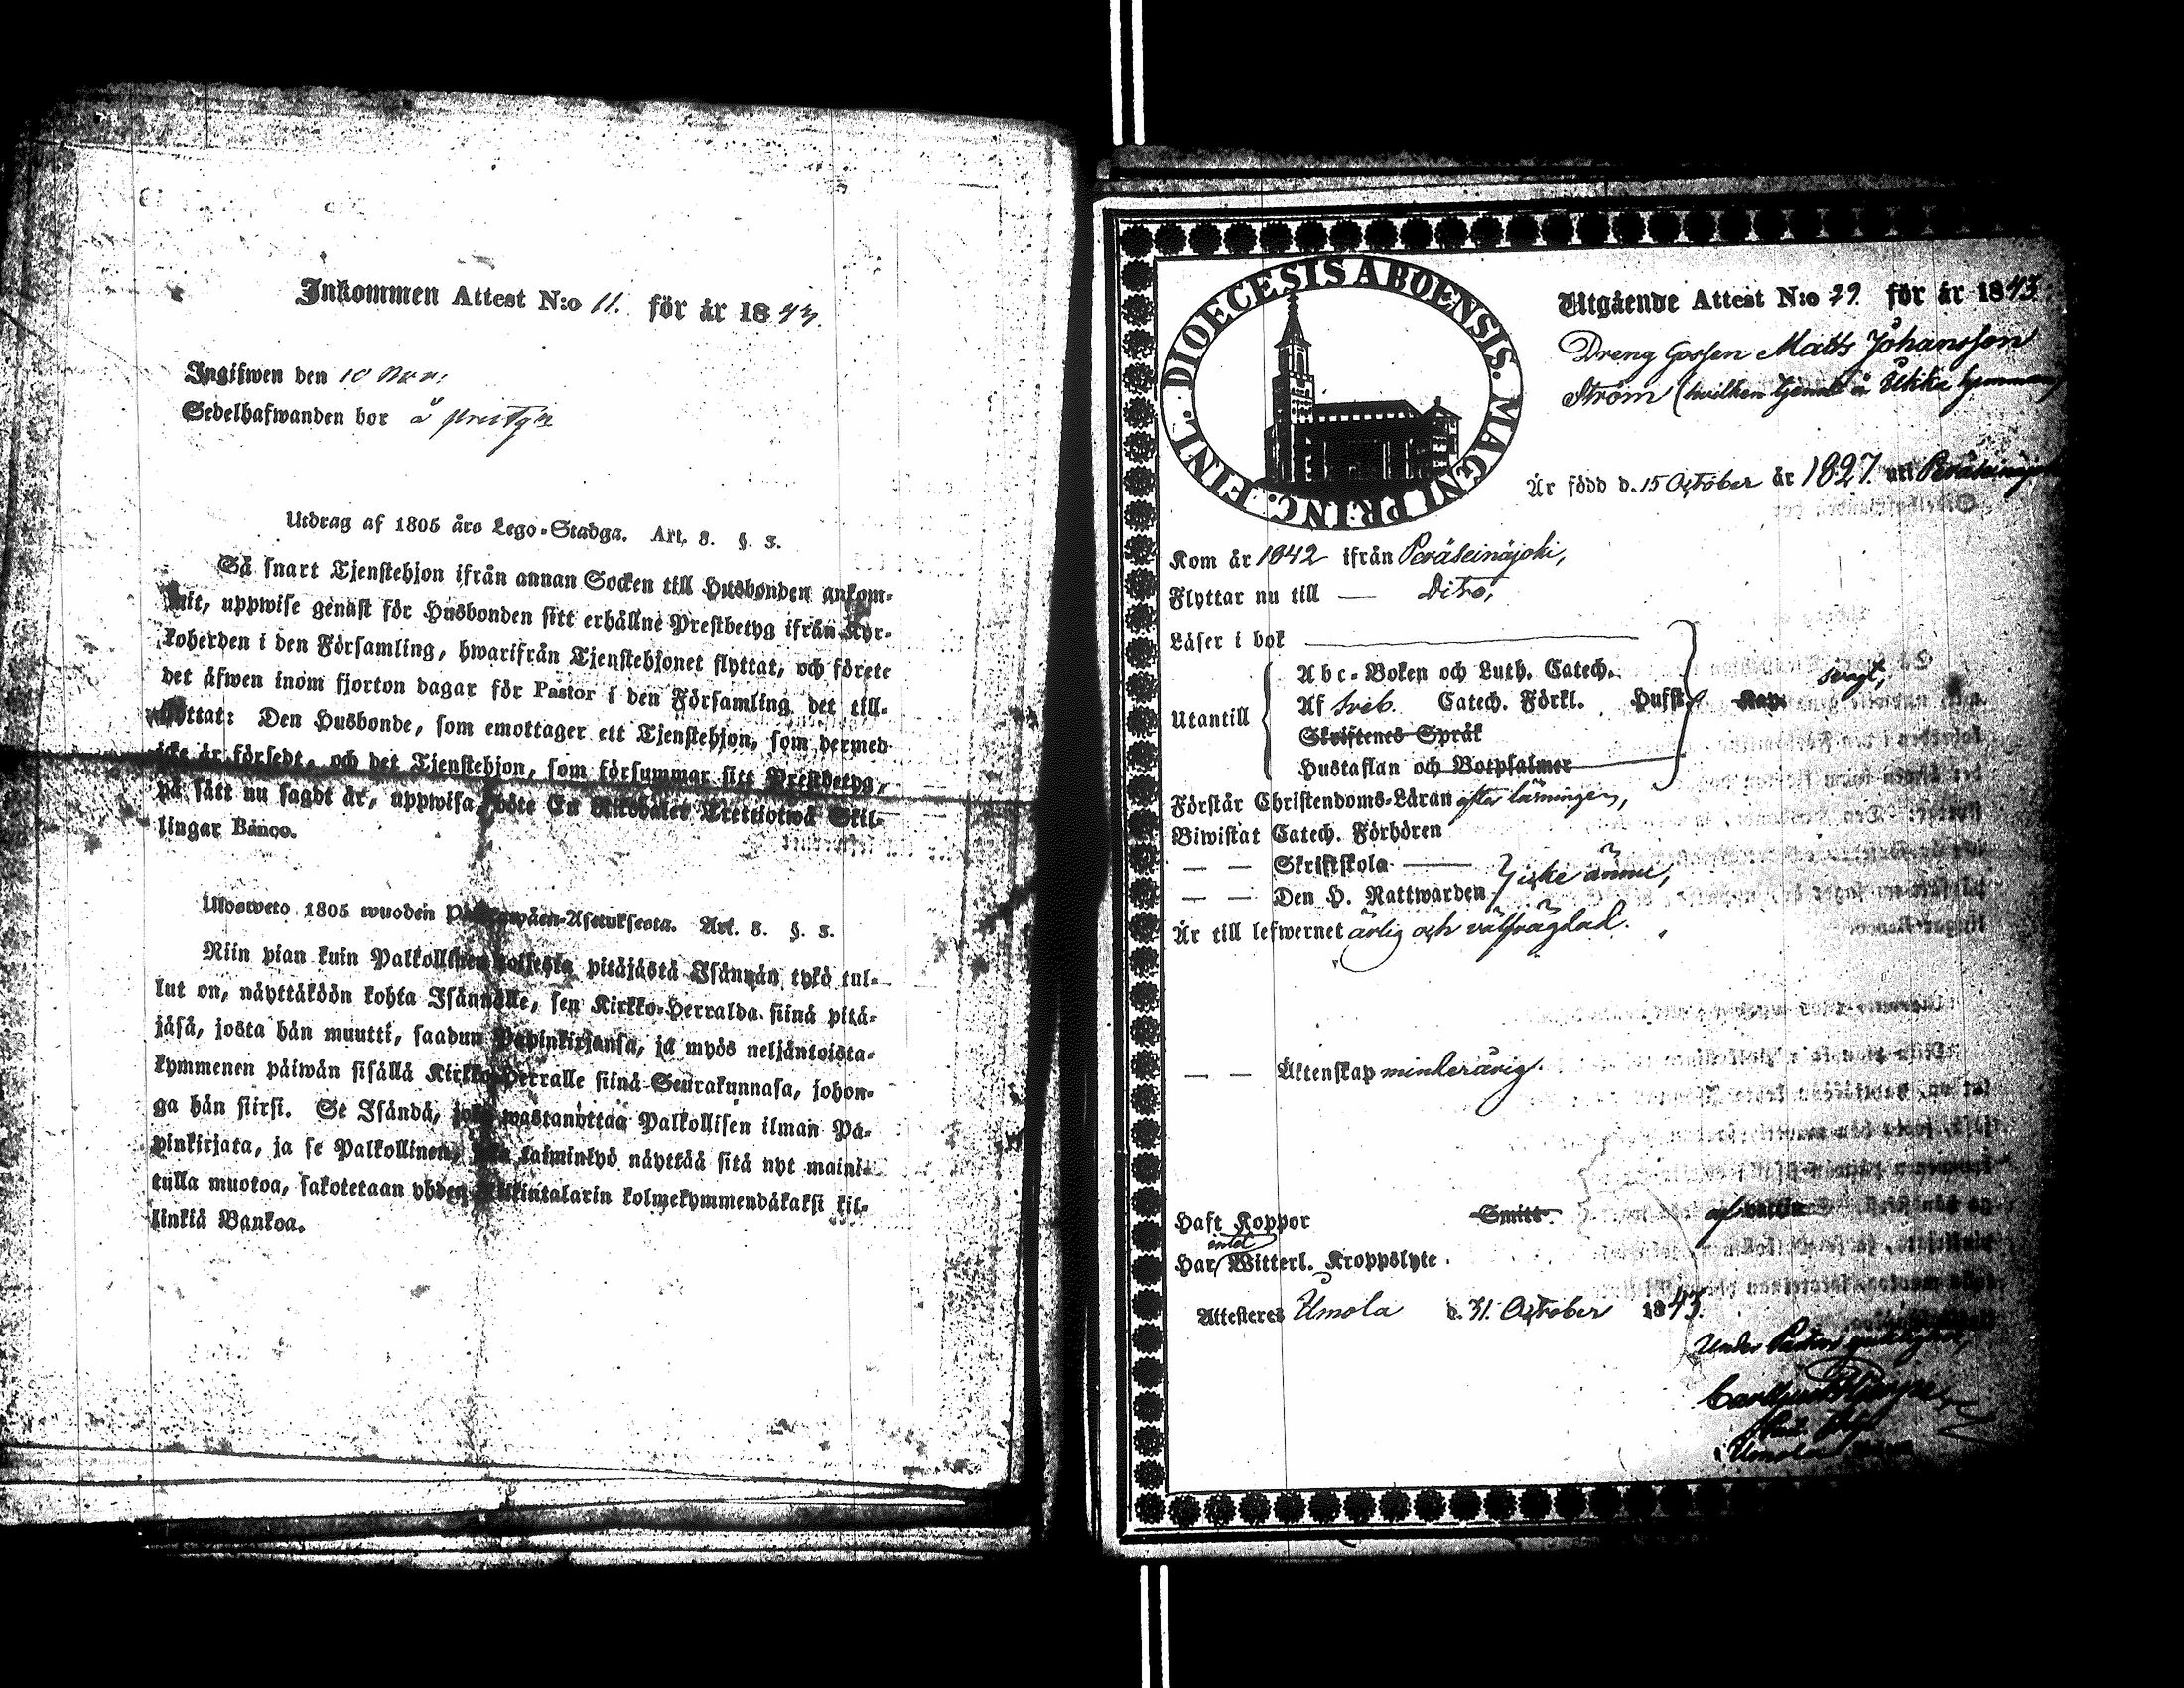 Inkommen Attest N:o 11. för år 1843.
Ingifwen den 10 Nov:
Sedelhafwanden bor å
Utdrag af 1805 års Lego-Stadga. Art. 8. §. 3.
Så snart Tjenstehjon ifrån annan Socken till Husbonden ankom-
mit, uppwise genast för Husbonden sitt erhållne Prestbetyg ifrån Kyr-
koherden i den Församling, hwarifrån Tjenstehjonet flyttat, och förete
det äfwen inom fjorton dagar för Pastor i den Församling det till-
flyttat: Den Husbonde, som emottager ett Tjenstehjon, som dermed
icke är försedt, och det Tjenstehjon, som försummar sitt Prestbetyg,
på sätt nu sagdt är, uppwisa, böte En Riksdaler Trettiotwå Skil-
lingar Banco.
Ulosweto 1805 wuoden Palkawäen-Asetuksesta. Art. 8. §. 3.
Niin pian kuin Palkollinen toisesta pitäjästä Isännän tykö tul-
lut on, näyttäköön kohta Isännälle, sen Kirkko-Herralda siinä pitä-
jäsä, josta hän muutti, saadun Papinkirjansa, ja myös neljäntoista-
kymmenen päiwän sisällä Kirkko-Herralle siinä Seurakunnasa, johon-
ga hän siirsi. Se Isändä, joka wastanottaa Palkollisen ilman Pa-
pinkirjata, ja se Palkollinen, laiminlyö näyttää sitä nyt maini-
tulla muotoa, sakotetaan yhden Riikintalarin kolmekymmendäkaksi kil-
linkiä Bankoa.
DIOECESIS ABOENSIS. MAGNI PRINC. FINL.
Utgående Attest N:o 29. för år 1843.
Dreng Gossen Matts Johansson
Ström (hvilken tjenat å Ukko hemman)
Är född d. 15 October år 1827. uti Peräseinäjoki
Kom år 1842 ifrån Peräseinäjoki,
Flyttar nu till — Dito,
Läser i bok
Abc-Boken och Luth. Catech.
Utantill Af Sveb. Catech. Förkl. Hufst. Kap. svagt,
Skriftenes Språk
Hustaflan och Botpsalmer
Förstår Christendoms-Läran efter läsningen,
Biwistat Catech. Förhören
— — Skriftskola
— — Den H. Nattwarden icke ännu,
Är till lefwernet ärlig och välfrägdad.
— — Äktenskap minderårig.
Haft Koppor Smitt af vaccin
Har intet Witterl. Kroppslyte.
Attesteres Ilmola d. 31. October 1843.
Under Pastors
Ilmola